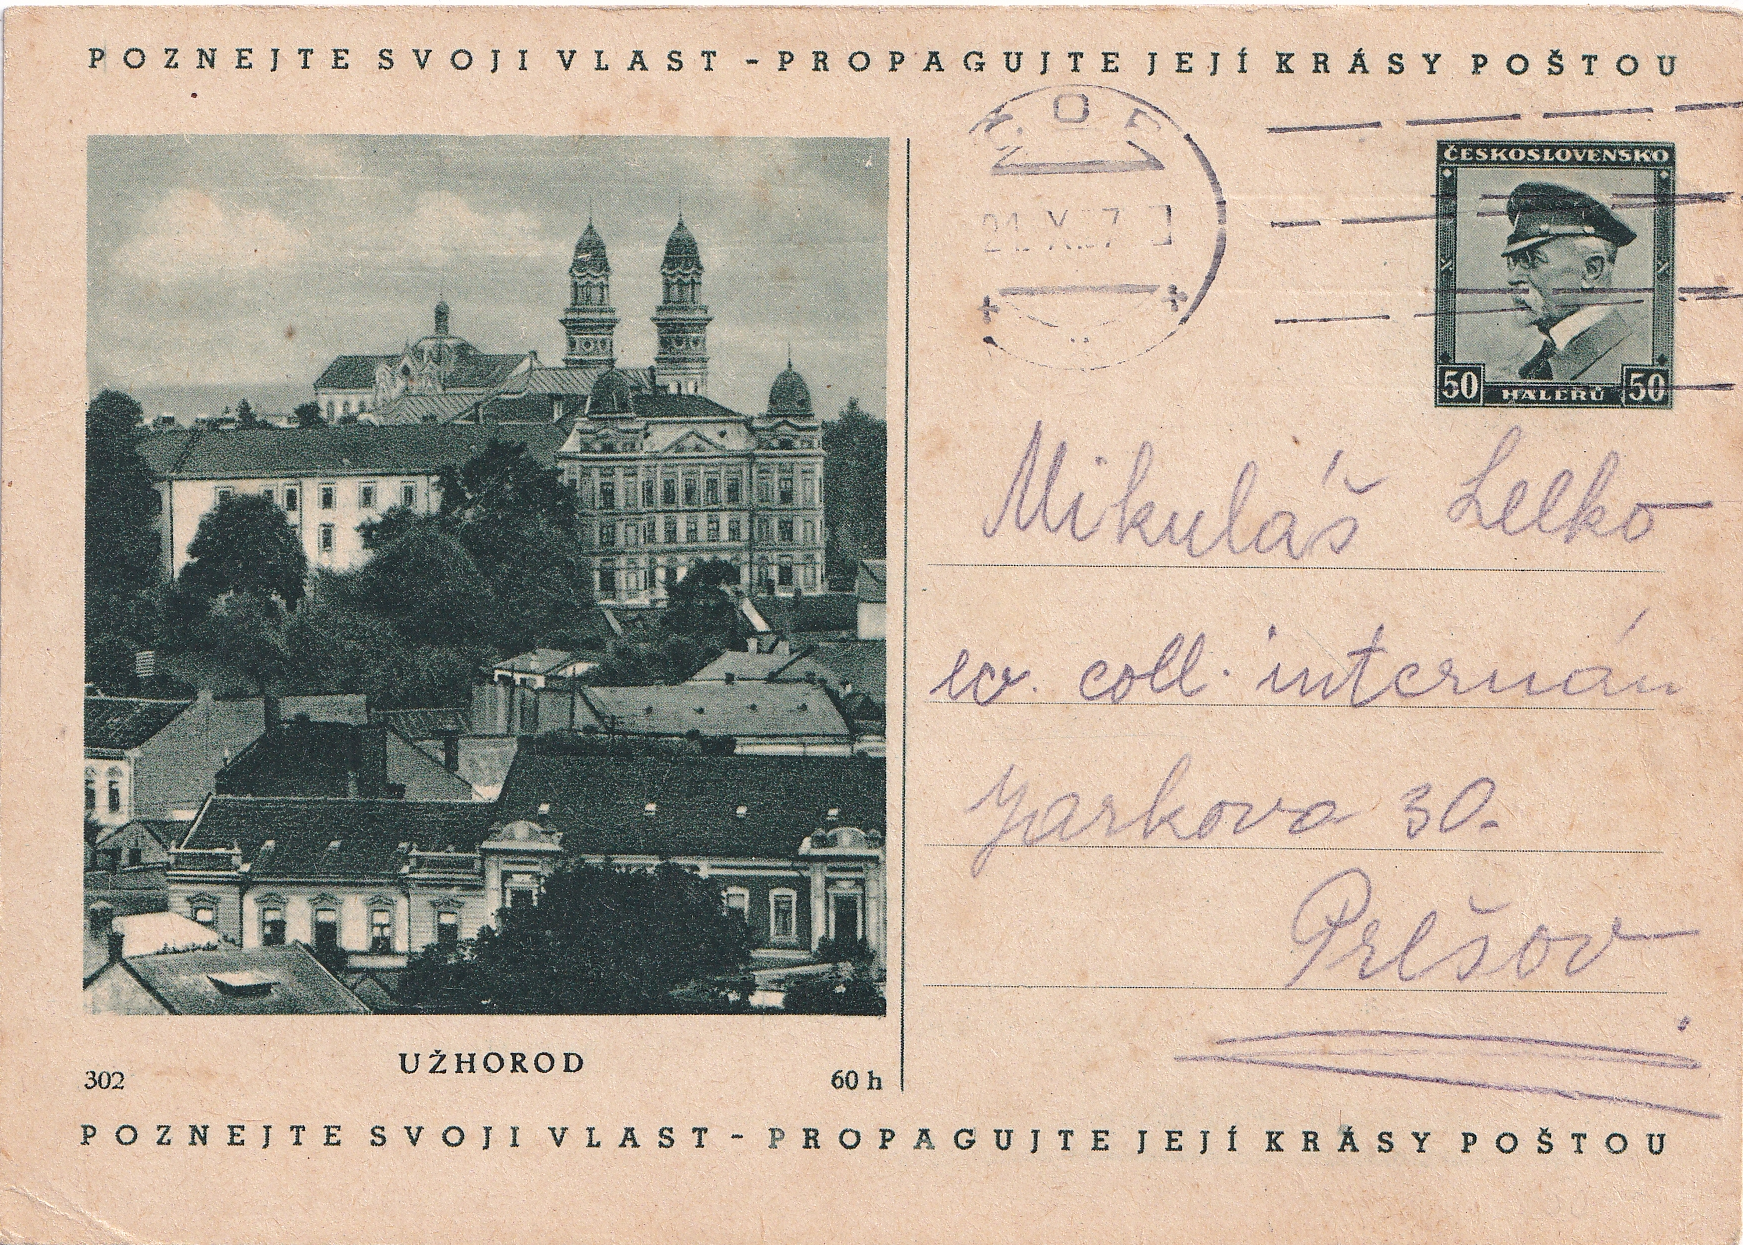 POZNEJTE SVOJI VLAST - PROPAGUJTE JEJÍ KRÁSY POŠTOU
21. X. 37
ČESKOSLOVENSKO
50 HALÉRŮ 50
Mikuláš Lelko
ev. coll. internán
Jarkova 30.
Prešov
UŽHOROD
302
60 h
POZNEJTE SVOJI VLAST - PROPAGUJTE JEJÍ KRÁSY POŠTOU